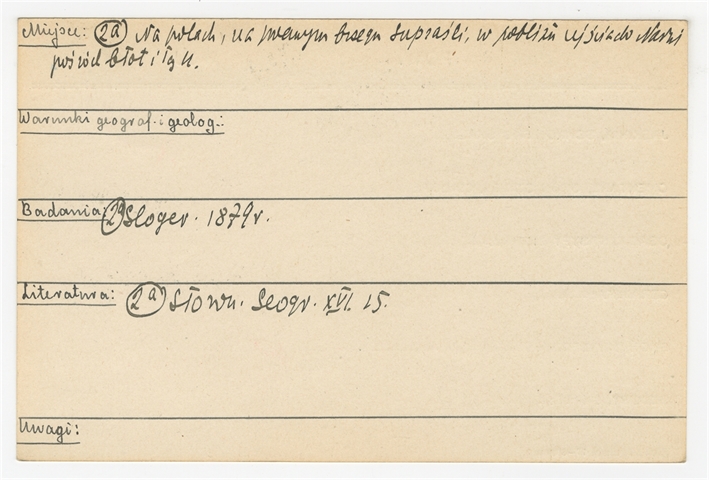 Miejsce: (2a) Na polach, na prawym brzegu Supraśli, w pobliżu ujścia do Narwi
pośród błot i łąk.
Warunki geograf. i geolog.:
Badania: (2a) Gloger. 1879 r.
Literatura: (2a) Słown. Geogr. XVI. 15.
Uwagi: